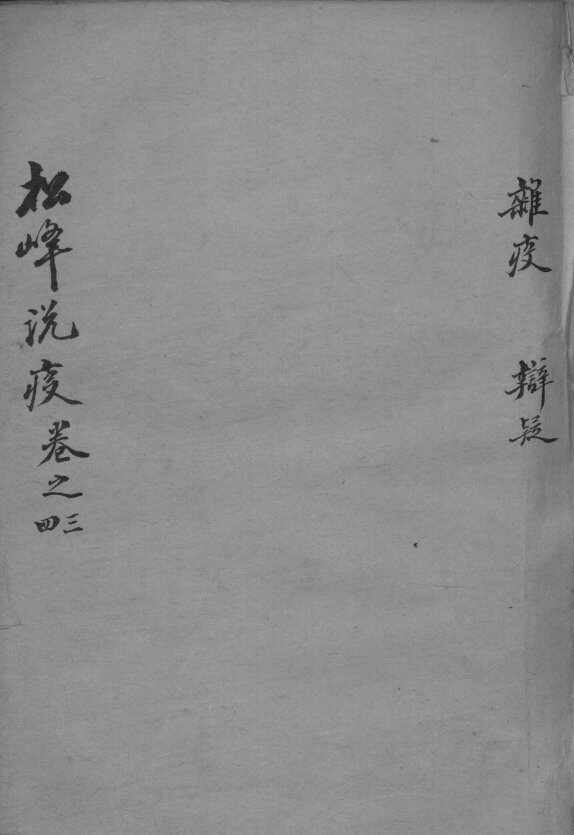 雜疫　辯疑
松峰说疫卷之三四